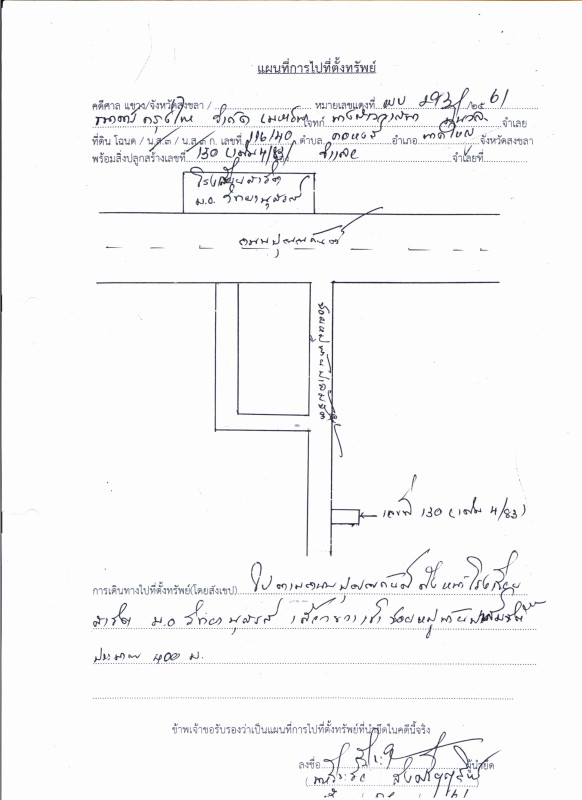 แผนที่การไปที่ตั้งทรัพย์
คดีศาล แขวง/จังหวัดสงขลา / หมายเลขแดงที่ ผบ /๒๕ 61
ธนาคารกรุงไทย จำกัด (มหาชน) โจทก์ จำเลย
ที่ดิน โฉนด / น.ส.๓ / น.ส.๓ ก. เลขที่ 116140 ตำบล คอหงส์ อำเภอ หาดใหญ่ จังหวัดสงขลา
พร้อมสิ่งปลูกสร้างเลขที่ 130 (เดิม 4/83) จำเลยที่
โรงเรียนสาธิต
ม.อ. วิทยานุสรณ์
ถนนปุณณกัณฑ์
เลขที่ 130 (เดิม 4/83)
การเดินทางไปที่ตั้งทรัพย์(โดยสังเขป) ไปตามถนนปุณณกัณฑ์ ถึงหน้าโรงเรียน
สาธิต ม.อ วิทยานุสรณ์ เลี้ยวขวาเข้าซอยหมู่บ้าน
ประมาณ 400 ม.
ข้าพเจ้าขอรับรองว่าเป็นแผนที่การไปที่ตั้งทรัพย์ที่นำยึดในคดีนี้จริง
ลงชื่อ ผู้นำยึด